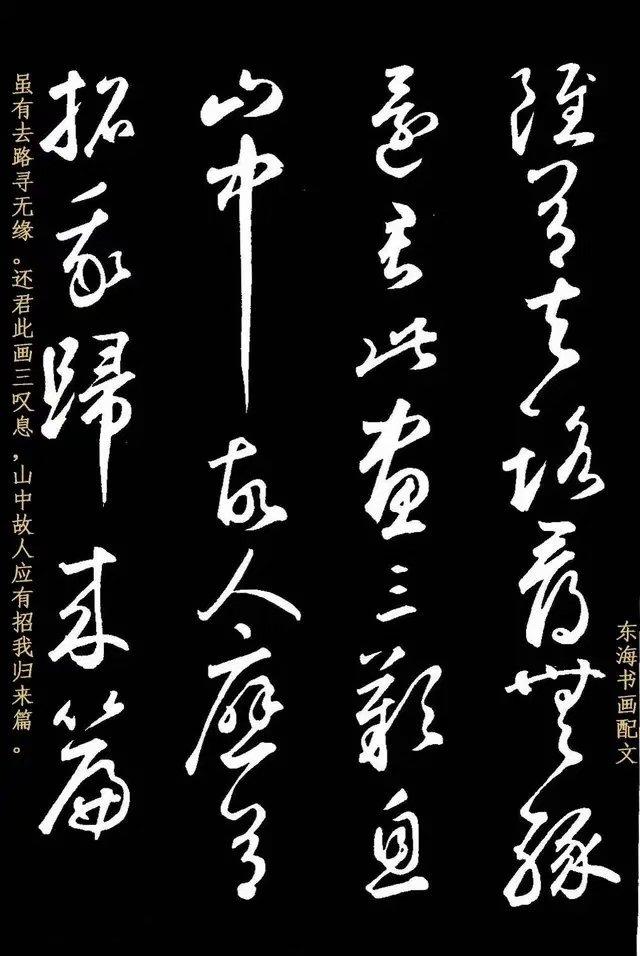 雖有去路尋無緣
還君此畫三歎息
山中故人應有
招我歸來篇
虽有去路寻无缘。还君此画三叹息,山中故人应有招我归来篇。
东海书画配文